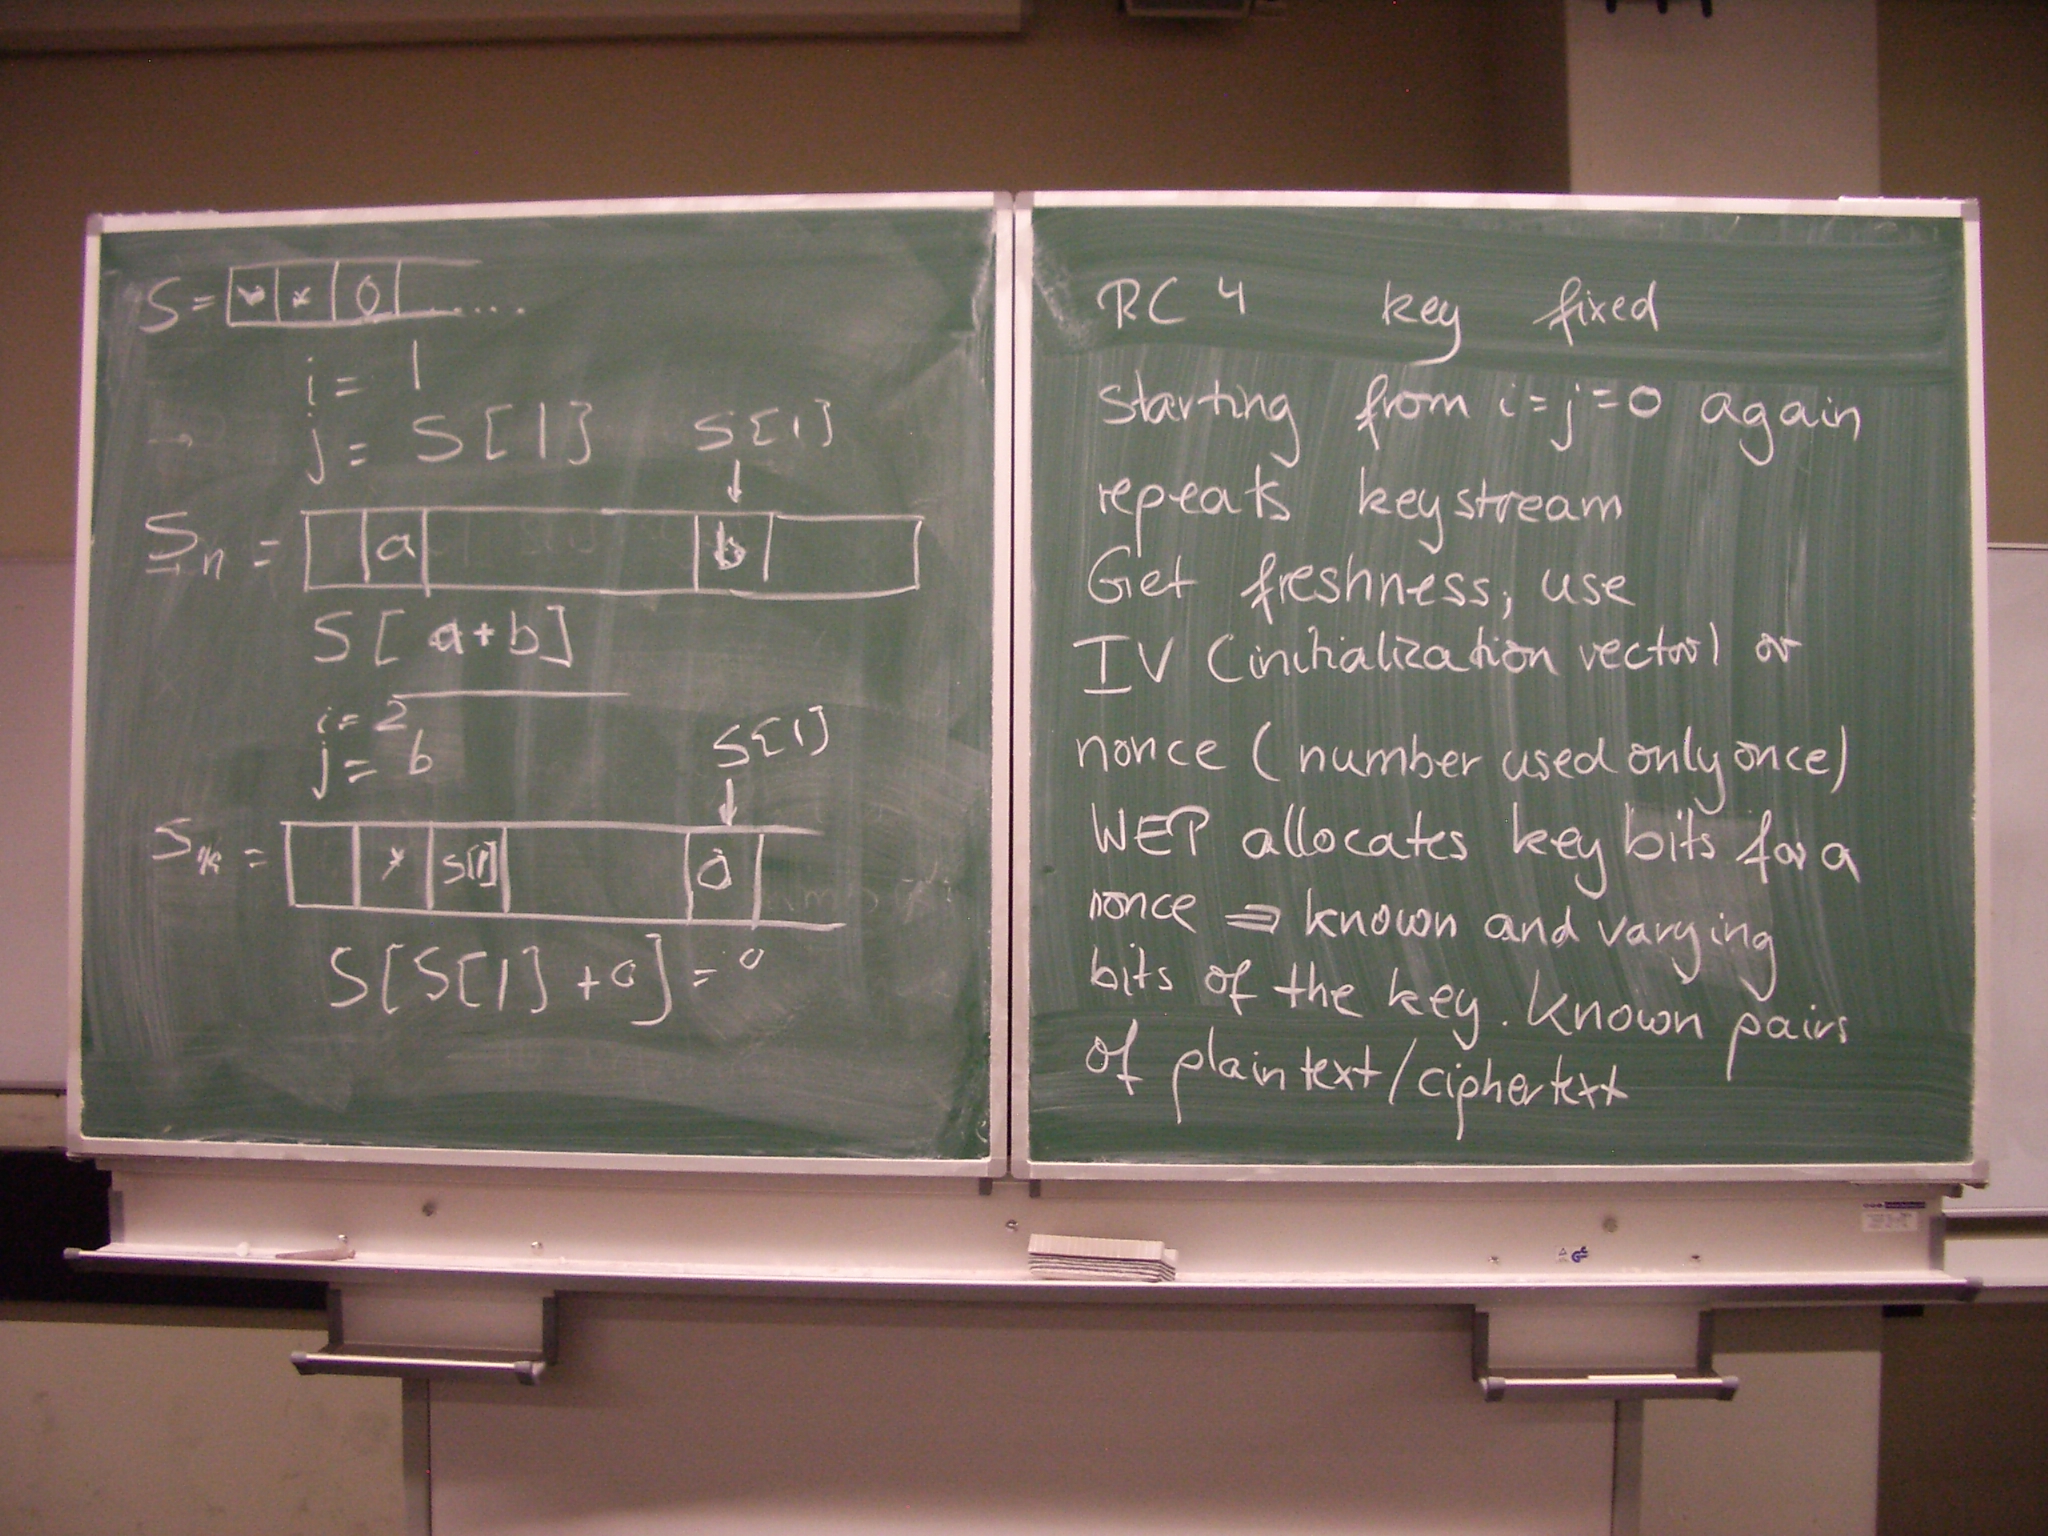 S = * * 0 .....
i = 1
j = S[1]
S[1]
↓
Sn = a b
S[a+b]
i = 2
j = b
S[1]
↓
= * S[1] 0
S[S[1]+0] = 0
RC4 key fixed
starting from i=j=0 again
repeats keystream
Get freshness; use
IV (initialization vector) or
nonce (number used only once)
WEP allocates key bits for a
nonce ⇒ known and varying
bits of the key. Known pairs
of plaintext/ciphertext